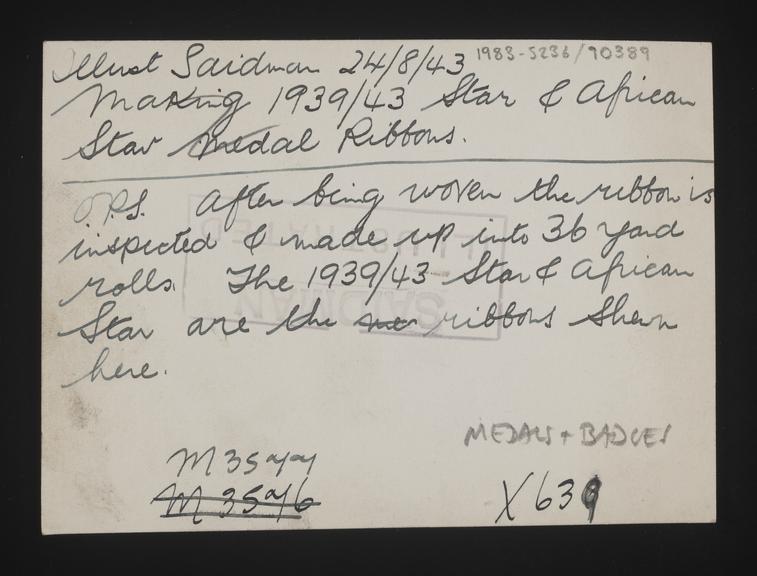 Illust Saidman 24/8/43 1983-5236/90389
Making 1939/43 Star & African
Star Medal Ribbons.
O.P.S. After being woven the ribbon is
inspected & made up into 36 yard
rolls. The 1939/43 Star & African
Star are the ribbons shewn
here.
ILLUSTRATED
SAIDMAN
MEDALS + BADGES
M35
M35
X639